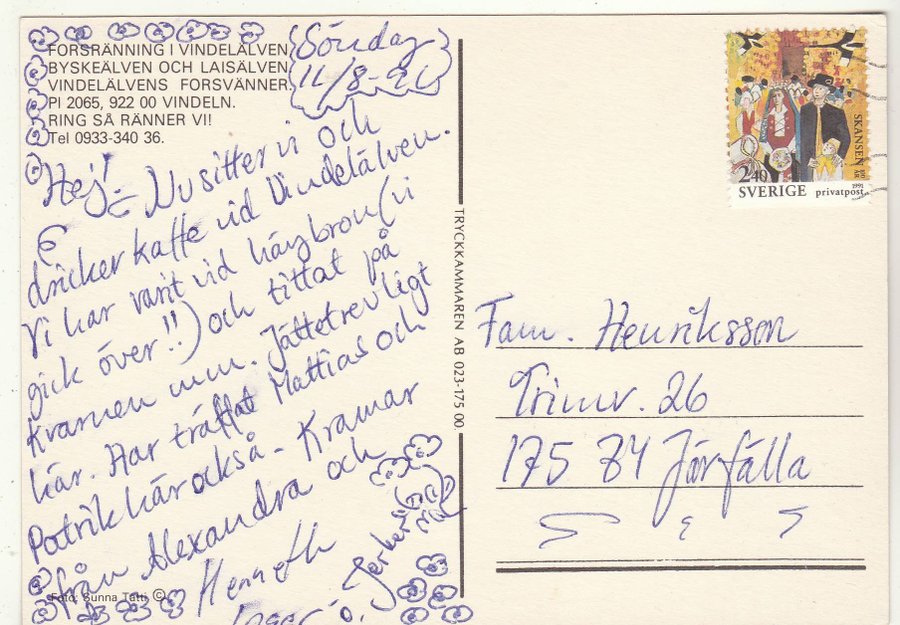 FORSRÄNNING I VINDELÄLVEN,
BYSKEÄLVEN OCH LAISÄLVEN
VINDELÄLVENS FORSVÄNNER.
Pl 2065, 922 00 VINDELN.
RING SÅ RÄNNER VI!
Tel 0933-340 36.
Söndag
11/8-91
Hej! Nu sitter vi och
dricker kaffe vid Vindelälven.
Vi har varit vid hängbron (vi
gick över!!) och tittat på
Kvarnen mm. Jättetrevligt
här. Har träffat Mattias och
Patrik här också. Kramar
från Alexandra och
Kenneth
Foto: Sunna Tatti ©
TRYCKKAMMAREN AB 023-175 00
SKANSEN 100 ÅR
2.40
1991
SVERIGE privatpost.
Fam. Henriksson
Trimv. 26
175 74 Järfälla